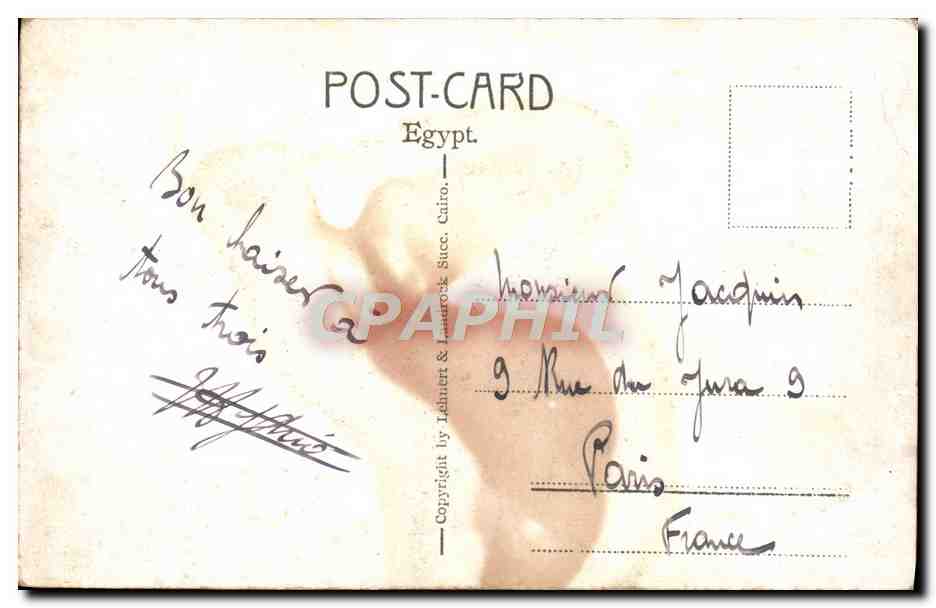 POST-CARD
Egypt.
Bon baiser à
tous trois
Copyright by Lehnert & Landrock Succ. Cairo.
CPAPHIL
Monsieur Jacquin
9 Rue du Jura 9
Paris
France